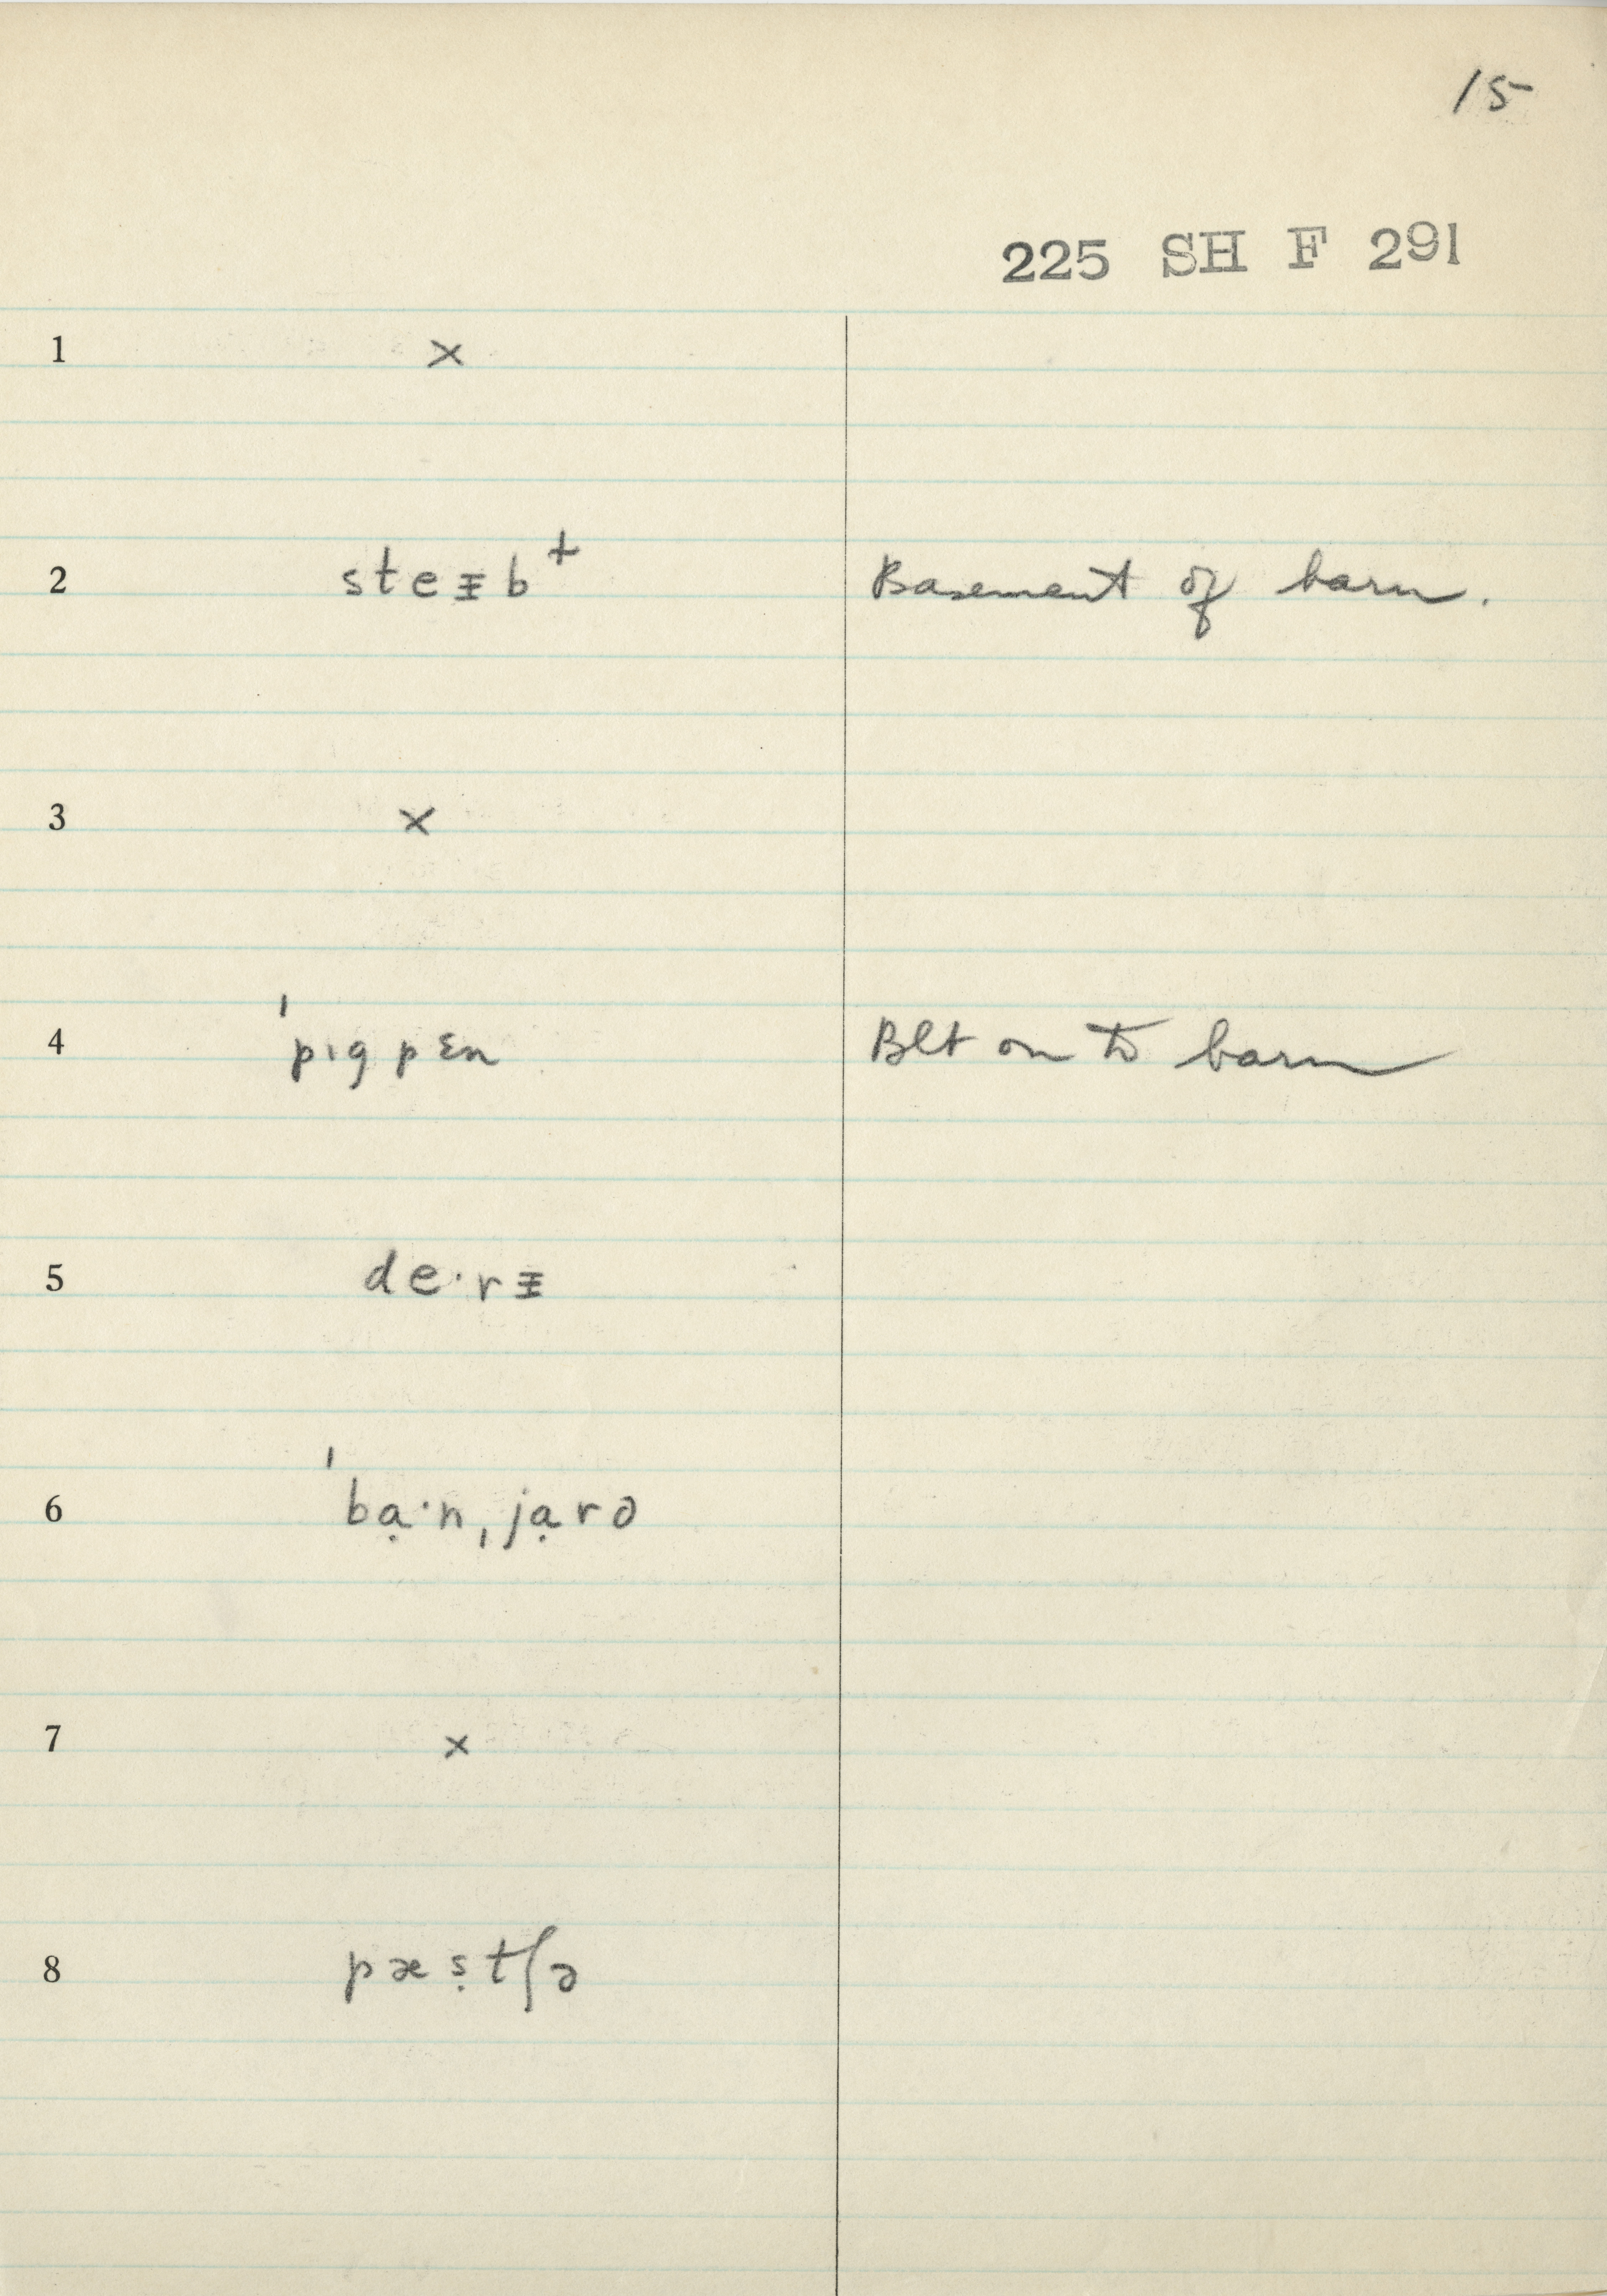 15
225 SH F 291
1 ×
2 steᵻb⁺ Basement of barn.
3 ×
4 ˈpɪgpɛn Blt on to barn
5 deˑrᵻ
6 ˈbạˑnˌjạrə
7 ×
8 pæṣtʃə